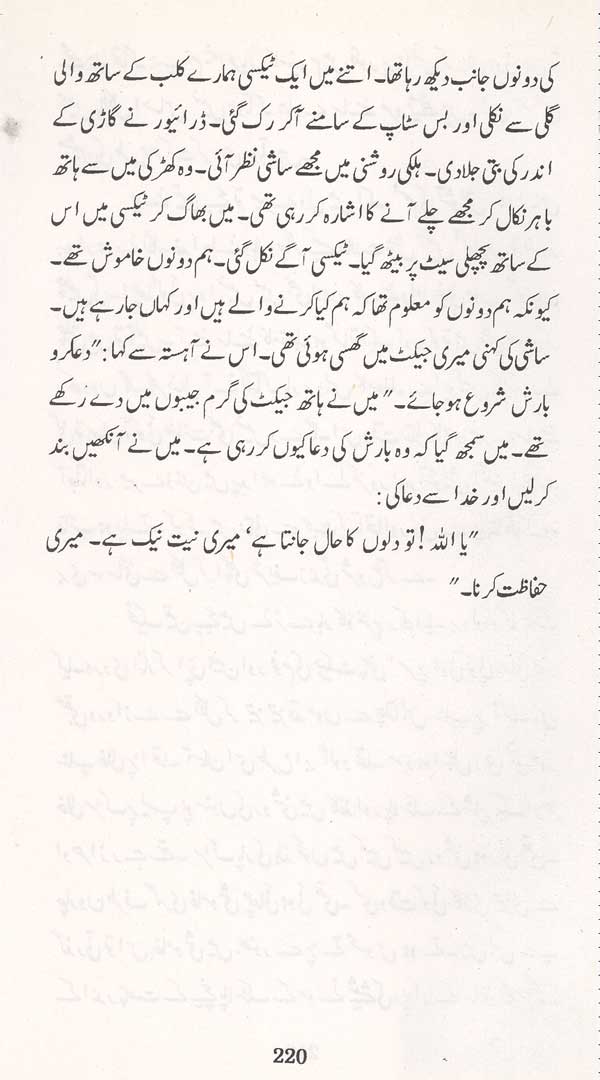 کی دونوں جانب دیکھ رہا تھا۔ اتنے میں ایک ٹیکسی ہمارے کلب کے ساتھ والی
گلی سے نکلی اور بس سٹاپ کے سامنے آ کر رک گئی۔ ڈرائیور نے گاڑی کے
اندر کی بتی جلا دی۔ ہلکی روشنی میں مجھے ساشی نظر آئی۔ وہ کھڑکی میں سے ہاتھ
باہر نکال کر مجھے چلے آنے کا اشارہ کر رہی تھی۔ میں بھاگ کر ٹیکسی میں اس
کے ساتھ پچھلی سیٹ پر بیٹھ گیا۔ ٹیکسی آگے نکل گئی۔ ہم دونوں خاموش تھے۔
کیونکہ ہم دونوں کو معلوم تھا کہ ہم کیا کرنے والے ہیں اور کہاں جا رہے ہیں۔
ساشی کی کہنی میری جیکٹ میں گھسی ہوئی تھی۔ اس نے آہستہ سے کہا: "دعا کرو
بارش شروع ہو جائے۔" میں نے ہاتھ جیکٹ کی گرم جیبوں میں دے رکھے
تھے۔ میں سمجھ گیا کہ وہ بارش کی دعا کیوں کر رہی ہے۔ میں نے آنکھیں بند
کر لیں اور خدا سے دعا کی:
"یا اللہ! تو دلوں کا حال جانتا ہے، میری نیت نیک ہے۔ میری
حفاظت کرنا۔"
220